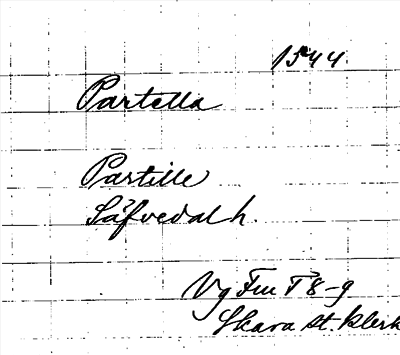 1544
Partella
Partille
Säfvedal h.
Vg Fm I 8-9
Skara st. klerk